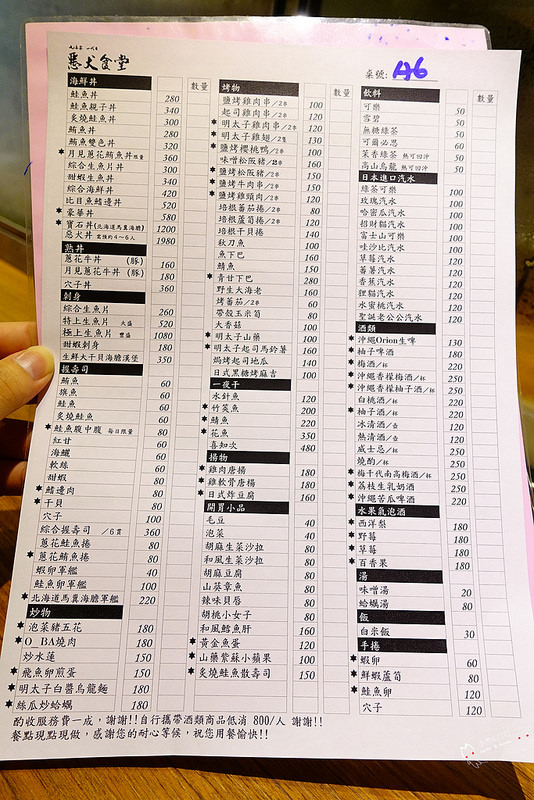 惡犬食堂
桌號: A6
海鮮丼 數量
鮭魚丼 280
鮭魚親子丼 340
炙燒鮭魚丼 320
鮪魚丼 280
鮪魚雙色丼 320
★月見蔥花鮪魚丼限量 360
綜合生魚片丼 300
甜蝦生魚丼 340
綜合海鮮丼 420
比目魚鰭邊丼 520
★豪華丼 580
★寶石丼(北海道馬糞海膽) 1200
惡犬丼 當獲約4~6人 1980
熟丼
蔥花牛丼 (豚) 160
月見蔥花牛丼 (豚) 180
穴子丼 360
刺身
綜合生魚片 260
特上生魚片 大盛 520
極上生魚片 豐盛 1080
甜蝦刺身 180
生鮮大干貝海膽漢堡 350
握壽司
鮪魚 60
旗魚 60
鮭魚 60
炙燒鮭魚 60
★鮭魚腹中腹 每日限量 80
紅甘 60
海鱺 60
軟絲 60
甜蝦 60
★鰭邊肉 80
★干貝 80
穴子 100
綜合握壽司 /6貫 360
蔥花鮭魚捲 80
★蔥花鮪魚捲 80
蝦卵軍艦 40
鮭魚卵軍艦 100
★北海道馬糞海膽軍艦 220
炒物
★泡菜豬五花 180
★O BA燒肉 180
炒水蓮 150
★飛魚卵煎蛋 150
★明太子白醬烏龍麵 180
★絲瓜炒蛤蠣 180
烤物 數量
鹽烤雞肉串/2串 100
起司雞肉串/2串 120
★明太子雞肉串/2串 130
★明太子雞翅/2隻 120
★鹽烤櫻桃鴨/2串 100
味噌松阪豬/2串 160
★鹽烤松阪豬/2串 150
★鹽烤牛肉串/2串 150
★鹽烤雞頸肉/2串 120
培根番茄捲/2串 80
培根蘆筍捲/2串 120
培根干貝捲 140
秋刀魚 100
魚下巴 100
鯖魚 150
★青甘下巴 200
野生大海老 160
烤番茄/2串 60
帶殼玉米筍 80
大香菇 100
★明太子山藥 100
★明太子起司馬鈴薯 160
焗烤起司地瓜 140
日式黑糖烤麻吉 100
一夜干
水針魚 120
★竹筴魚 200
★鯖魚 220
★花魚 350
喜知次 480
揚物
★雞肉唐揚 180
★雞軟骨唐揚 180
★日式炸豆腐 160
開胃小品
毛豆 40
泡菜 40
胡麻生菜沙拉 80
和風生菜沙拉 80
胡麻豆腐 80
山葵章魚 80
辣味貝唇 80
胡桃小女子 80
和風鱈魚肝 160
★黃金魚蛋 120
★山藥紫蘇小蘋果 100
★炙燒鮭魚散壽司 150
飲料 數量
可樂 50
雪碧 50
無糖綠茶 50
可爾必思 60
茉香綠茶 熱可回沖 50
高山烏龍 熱可回沖 50
日本進口汽水
綠茶可樂 100
玫瑰汽水 100
哈密瓜汽水 100
招財貓汽水 100
富士山可樂 100
哇沙比汽水 100
草莓汽水 120
蕃薯汽水 120
香蕉汽水 120
狸貓汽水 120
水蜜桃汽水 120
聖誕老公公汽水 120
酒類
★沖繩Orion生啤 130
★柚子啤酒 180
★梅酒/杯 220
★沖繩香檬梅酒/杯 250
★沖繩香檬柚子酒/杯 250
白桃酒/杯 220
★柚子酒/杯 220
冰清酒/壺 120
熱清酒/壺 120
威士忌/杯 250
燒酌/杯 250
★梅干代南高梅酒/杯 250
★荔枝生乳奶酒 250
★沖繩苦瓜啤酒 220
水果氣泡酒
★西洋梨 180
★野莓 180
★草莓 180
★百香果 180
湯
味噌湯 20
蛤蠣湯 80
飯
白米飯 30
手捲
★蝦卵 60
鮮蝦蘆筍 80
★鮭魚卵 120
穴子 120
酌收服務費一成, 謝謝!!自行攜帶酒類商品低消 800/人 謝謝!!
餐點現點現做, 感謝您的耐心等候, 祝您用餐愉快!!